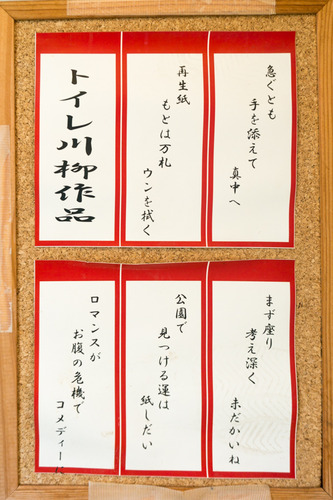 急ぐとも
手を添えて
真中へ
再生紙
もとは万札
ウンを拭く
トイレ川柳作品
まず座り
考え深く
未だかいね
公園で
見つける運は
紙しだい
ロマンスが
お腹の危機で
コメディーに